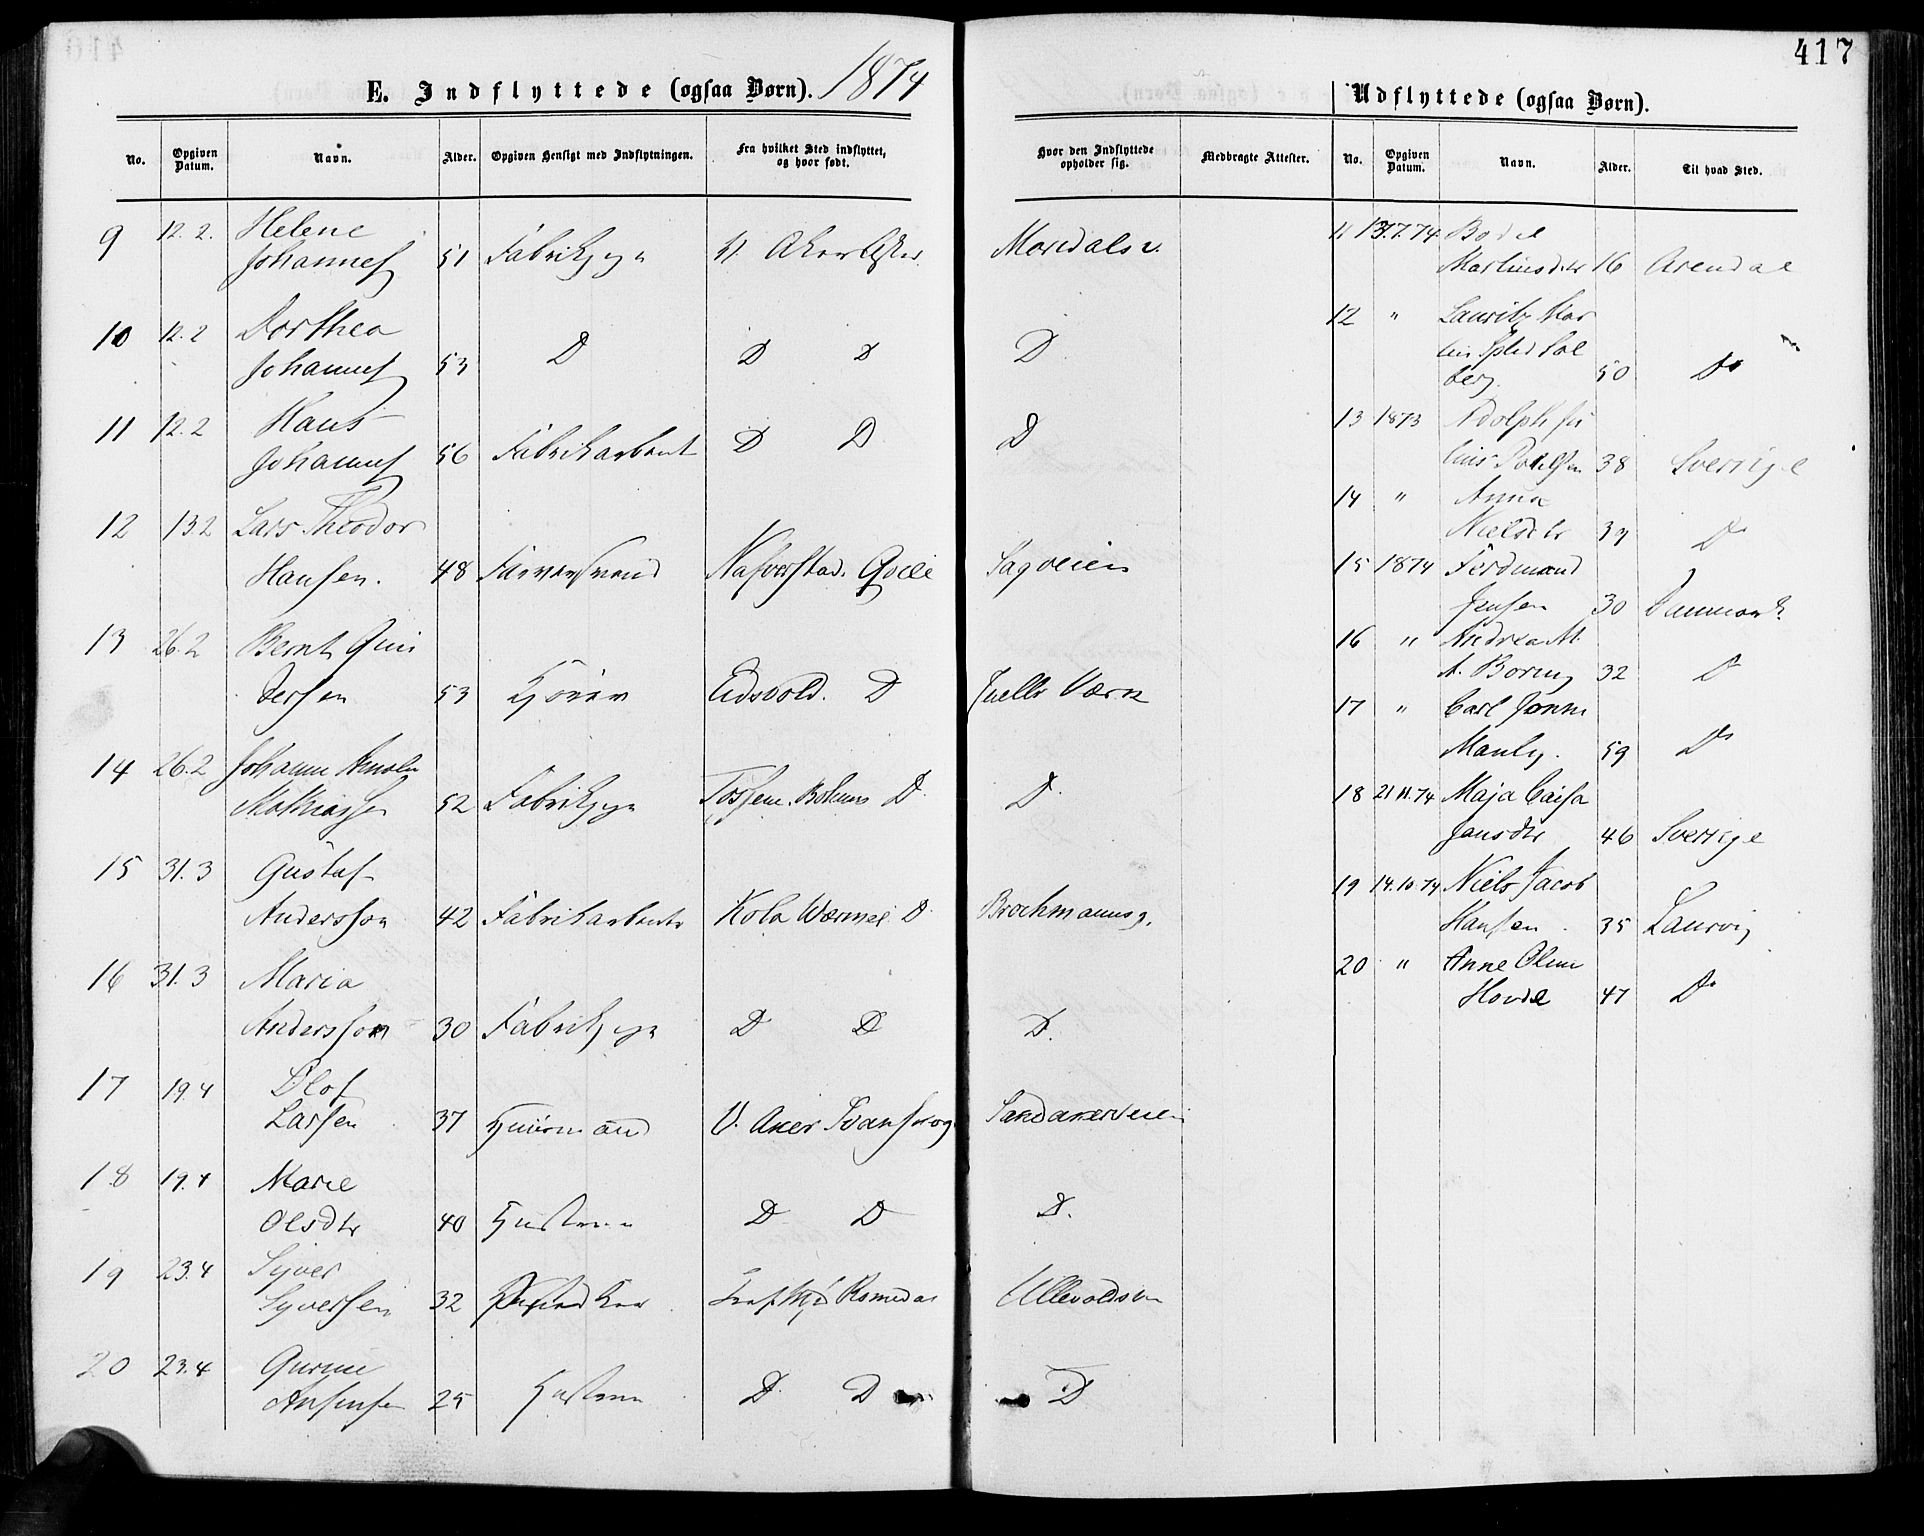 417
E. Indflyttede (ogsaa Børn). 1874
No. Opgiven Datum. Navn. Alder. Opgiven Hensigt med Indflytningen. Fra hvilket Sted indflyttet, og hvor født. Hvor den Indflyttede opholder sig. Medbragte Attester.
9 12.2. Helene
Johannes 51 Fabrikpige V. Aker Asker Maridalsv.
10 12.2 Dorthea
Johannes 53 D D D D
11 12.2 Hans
Johannes 56 Fabrikarbeid D D D
12 13.2 Lars Theodor
Hansen. 48 Farversvend Nafverstad. Sagveien
13 26.2 Bernt Gun
dersen 53 Kjører Eidsvold. D Værk
14 26.2 Johanne
Mathiassen 52 Fabrikpige D D
15 31.3 Gustaf
Andersson 42 Fabrikarbeider Kola Wermel D Brochmannsg.
16 31.3 Maria
Andersson 30 Fabrikpige D D D.
17 19.4 Olof
Larsen 37 Huusmand V. Aker Sandakerveien
18 19.4 Marie
Olsdtr 40 Hustru D D D.
19 23.4 Syver
Syversen 32 Romedal Ullevoldsv
20 23.4 Gurine
25 Hustru D D D
Udflyttede (ogsaa Børn).
No. Opgiven Datum. Navn. Alder. Til hvad Sted.
11 Bodil
Martinsdtr 16 Arendal
12 " Lauritz Mar
tin Sol
berg. 50 Do
13 1873 Adolph Ju
lius Poulsen 38 Sverrige
14 " Anna
Nielsdtr D
15 1874 Ferdinand
Jensen 30 Danmark
16 " Andrea M.
A. Boring 32 D
17 " Carl
Manly. 59 D
18 21.11.74 Maja Caisa
Jansdtr 46 Sverrige
19 14.10.74 Niels Jacob
Hansen 35 Laurvig
20 " Anne Oline
Hovde 47 D